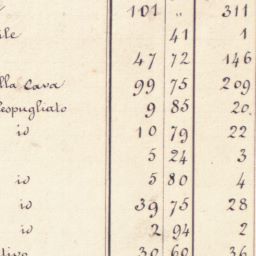 101 " 311
41 1
47 72 146
lla Cava 99 75 209
espugliato 9 85 20
io 10 79 22
5 24 3
io 5 80 4
io 39 75 28
io 2 94 2
30 60 36